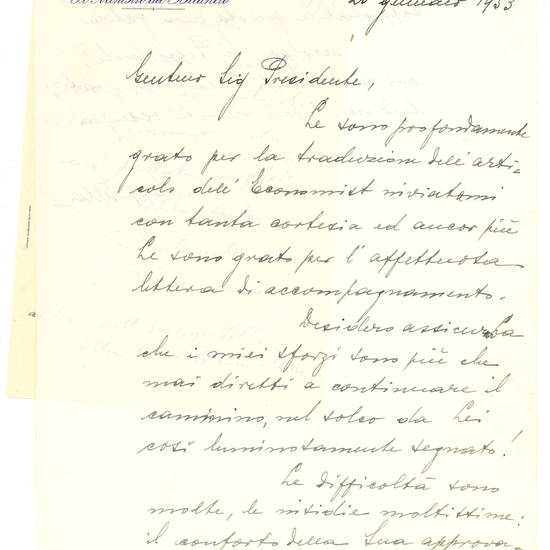 Il Ministro del Bilancio
26 gennaio 1953
Gentmo Sig Presidente,
Le sono profondamente
grato per la traduzione dell' arti-
colo dell' Economist inviatomi
con tanta cortesia ed ancor più
Le sono grato per l' affettuosa
lettera di accompagnamento.
Desidero assicurarLa
che i miei sforzi sono più che
mai diretti a continuare il
cammino, nel solco da Lei
così luminosamente segnato!
Le difficoltà sono
molte, le insidie moltissime:
il conforto della Sua approva-